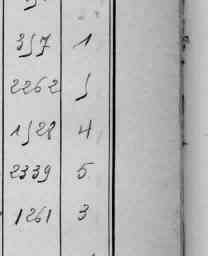 357 1
2262 5
1528 4
2339 5
1261 3